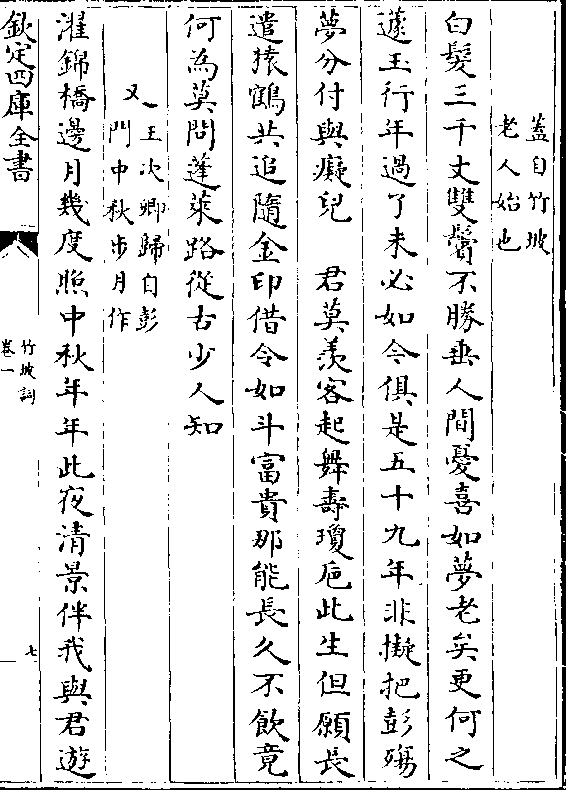 蓋自竹坡
老人始也
白髮三千丈雙鬢不勝垂人間憂喜如夢老矣更何之
蘧玉行年過了未必如今俱是五十九年非擬把彭殤
夢分付與癡兒　君莫羨客起舞壽瓊巵此生但願長
遣猿鶴共追隨金印借令如斗富貴那能長久不飲竟
何為莫問蓬萊路從古少人知
又 王次卿歸自彭
門中秋步月作
濯錦橋邊月幾度照中秋年年此夜清景伴我與君遊
欽定四庫全書
竹坡詞
卷一
七